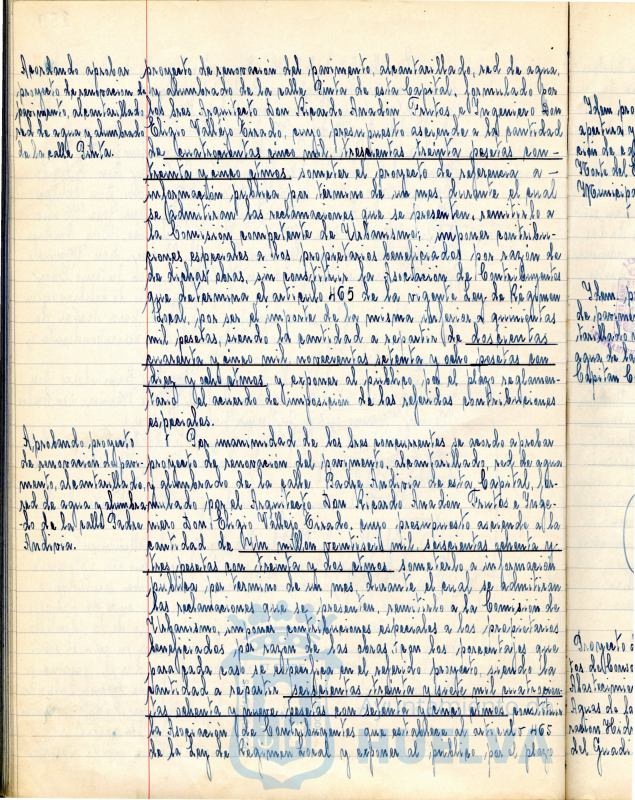 Acordando aprobar
proyecto de renovacion de
pavimento, alcantarillado,
red de agua y alumbrado
de la calle Pinta.
proyecto de renovación del pavimento, alcantarillado, red de agua
y alumbrado de la calle Pinta de esta Capital, formulado por
los Sres. Arquitecto Don Ricardo Anadón Frutos e Ingeniero Don
Eligio Vallejo Cirado, cuyo presupuesto asciende a la cantidad
de cuatrocientas cinco mil trescientas treinta pesetas con-
treinta y cinco ctmos. someter el proyecto de referencia a -
información pública por término de un mes, durante el cual
se admitiran las reclamaciones que se presenten, remitirlo a
la Comisión competente de Urbanismo; imponer contribu-
ciones especiales a los propietarios beneficiados por razón de
de dichas obras, sin constituir la Asociación de Contribuyentes
que determina el articulo 465 de la vigente Ley de Régimen
Local, por ser el importe de la misma inferior a quinientas
mil pesetas, siendo la cantidad a repartir de doscientas
cuarenta y cinco mil novecientas setenta y ocho pesetas con
diez y ocho ctmos, y exponer al público, por el plazo reglamen-
tario del acuerdo de imposición de las referidas contribuciones
especiales.
Aprobando proyecto
de renovacion del pavi-
mento, alcantarillado,
red de agua y alumbra-
do de la calle Padre
Andivia.
Por unanimidad de los Sres concurrentes se acordo aprobar
proyecto de renovación del pavimento, alcantarillado, red de agua
y alumbrado de la calle Padre Andivia de esta Capital, for-
mulado por el Arquitecto Don Ricardo Anadón Frutos e Inge-
niero Don Eligio Vallejo Cirado, cuyo presupuesto asciende a la
cantidad de Un millon veintiseis mil seiscientas ochenta y
tres pesetas con treinta y dos ctmos. someterlo a información
pública por termino de un mes durante el cual se admitiran
las reclamaciones que se presenten, remitirlo a la Comisión de
Urbanismo, imponer contribuciones especiales a los propietarios
beneficiados por razón de las obras, con los porcentajes que
para cada caso se especifica en el referido proyecto, siendo la
cantidad a repartir seiscientas treinta y siete mil cuatrocien-
tas ochenta y nueve pesetas con setenta y cinco ctmos, constituir
la Asociación de Contribuyentes que establece el articulo 465
de la Ley de Régimen Local y exponer al público por el plazo
Idem pro
apertura
ción de
Norte del
Municip
Idem p
de pavime
tarillado
agua de la
Capitan C
Proyecto
tos del Conso
Abastecimie
Aguas de la
ración Hidr
del Guadi